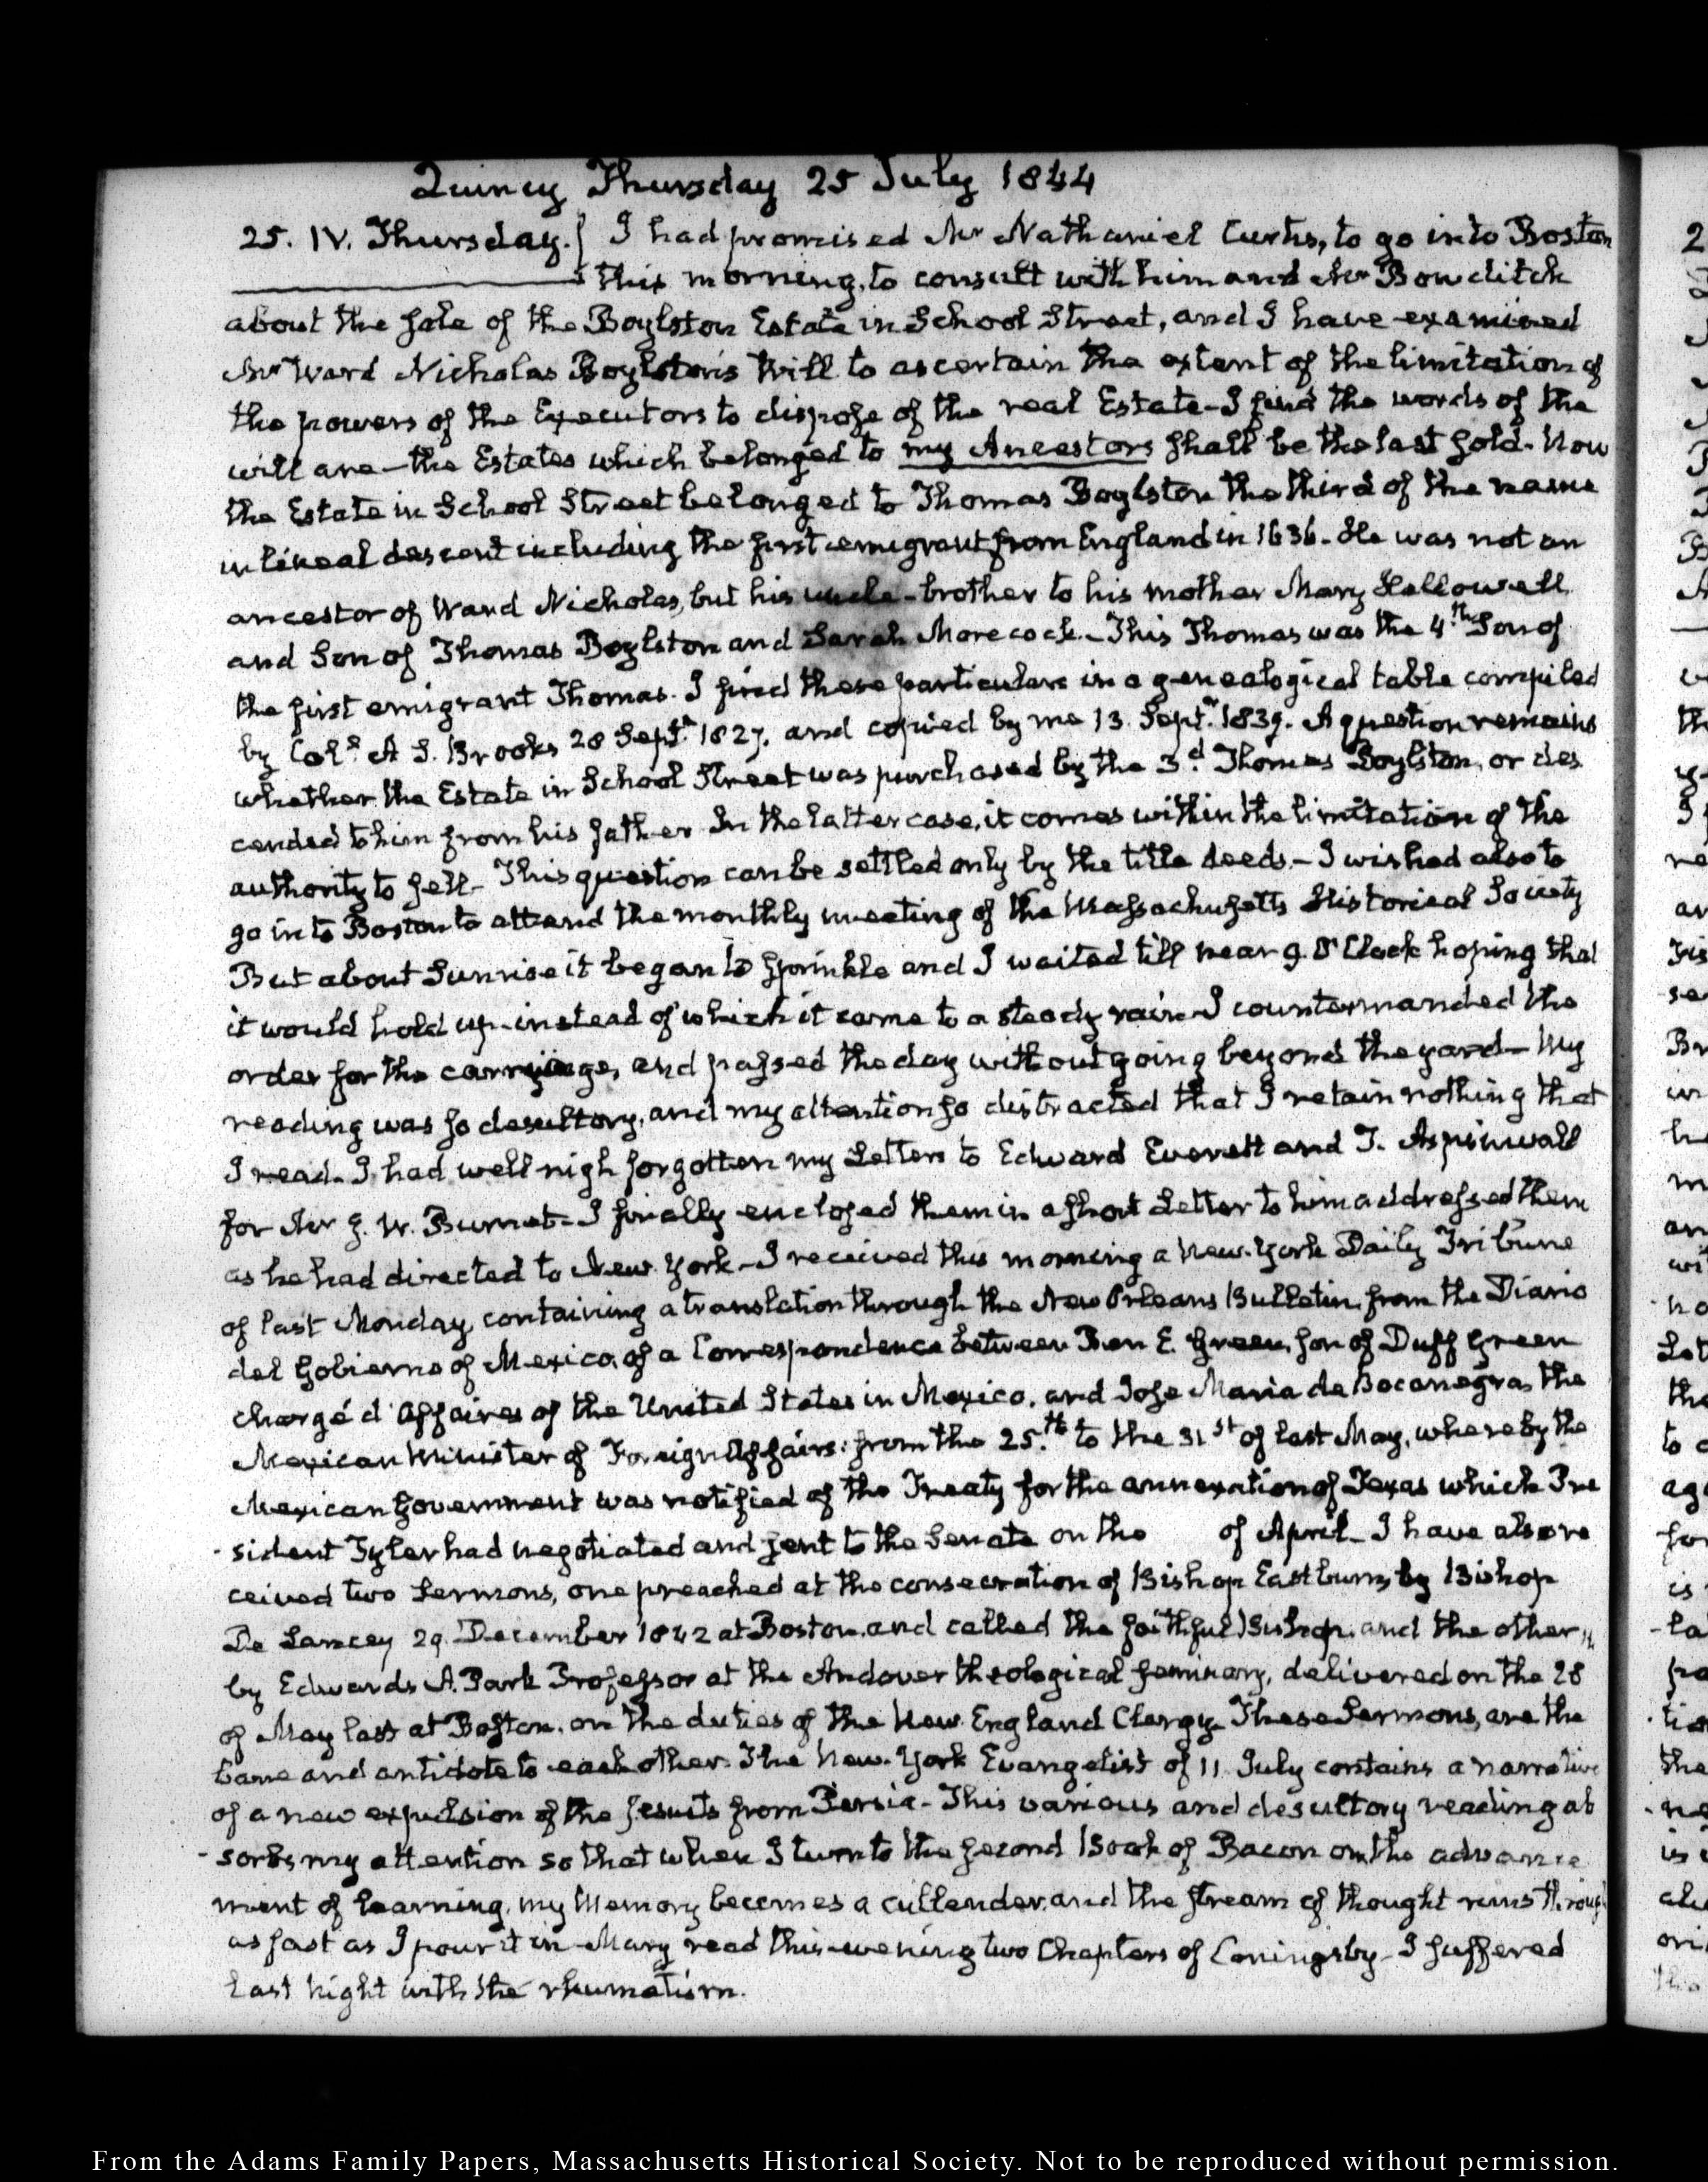 Quincy Thursday 25 July 1844
25. IV. Thursday. I had promised Mr Nathaniel Curtis, to go into Boston
this morning, to consult with him and Mr Bowditch
about the sale of the Boylston Estate in School Street, and I have examined
Mr Ward Nicholas Boylston's Will to ascertain the extent of the limitation of
the powers of the Executors to dispose of the real Estate - I find the words of the
will are - the Estates which belonged to my Ancestors shall be the last sold. Now
the Estate in School Street belonged to Thomas Boylston the third of the name
in lineal descent including the first emigrant from England in 1636. He was not an
ancestor of Ward Nicholas, but his uncle - brother to his mother Mary Hallowell
and Son of Thomas Boylston and Sarah Morecock. - This Thomas was the 4th Son of
the first emigrant Thomas. I find these particulars in a genealogical table compiled
by Coll A S. Brooks 28 Septr 1827, and copied by me 13. Septr 1839. A question remains
whether the Estate in School Street was purchased by the 3d Thomas Boylston, or des
cended to him from his father In the latter case, it comes within the limitation of the
authority to sell - This question can be settled only by the title deeds - I wished also to
go into Boston to attend the monthly meeting of the Massachusetts Historical Society
But about Sunrise it began to sprinkle and I waited till near 9. O'Clock hoping that
it would hold up - instead of which it came to a steady rain - I countermanded the
order for the carriage, and passed the day without going beyond the yard - My
reading was so desultory, and my attention so distracted that I retain nothing that
I read. I had well nigh forgotten my Letters to Edward Everett and T. Aspinwall
for Mr J. W. Burnet - I finally enclosed them in a short Letter to him addressed them
as he had directed to New York - I received this morning a New-York Daily Tribune
of last Monday, containing a translation through the New Orleans Bulletin, from the Diario
del Gobierno of Mexico, of a Correspondence between Ben E. Green, son of Duff Green
chargé d'Affaires of the United States in Mexico, and Jose Maria de Bocanegra, the
Mexican Minister of Foreign Affairs: from the 25th to the 31st of last May, whereby the
Mexican Government was notified of the Treaty for the annexation of Texas which Pre
sident Tyler had negotiated and sent to the Senate on the of April - I have also re
ceived two Sermons, one preached at the consecration of Bishop Eastburn, by Bishop
De Lancey 29. December 1842 at Boston, and called the faithful Bishop, and the other,
by Edwards A. Park Professor at the Andover theological seminary, delivered on the 28
of May last at Boston, on the duties of the New England Clergy - These Sermons, are the
bane and antidote to each other. The New-York Evangelist of 11 July contains a narrative
of a new expulsion of the Jesuits from Persia - This various and desultory reading ab
sorbs my attention so that when I turn to the second Book of Bacon on the advance
ment of learning, my Memory becomes a cullender, and the stream of thought runs through
as fast as I pour it in - Mary read this evening two Chapters of Coningsby - I suffered
last night with the rhumatism.
From the Adams Family Papers, Massachusetts Historical Society. Not to be reproduced without permission.